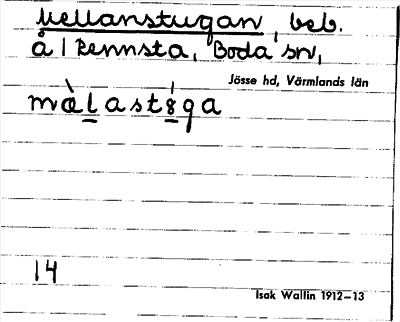 Mellanstugan, beb.
å 1 Rennsta, Boda sn,
Jösse hd, Värmlands län
14
Isak Wallin 1912–13